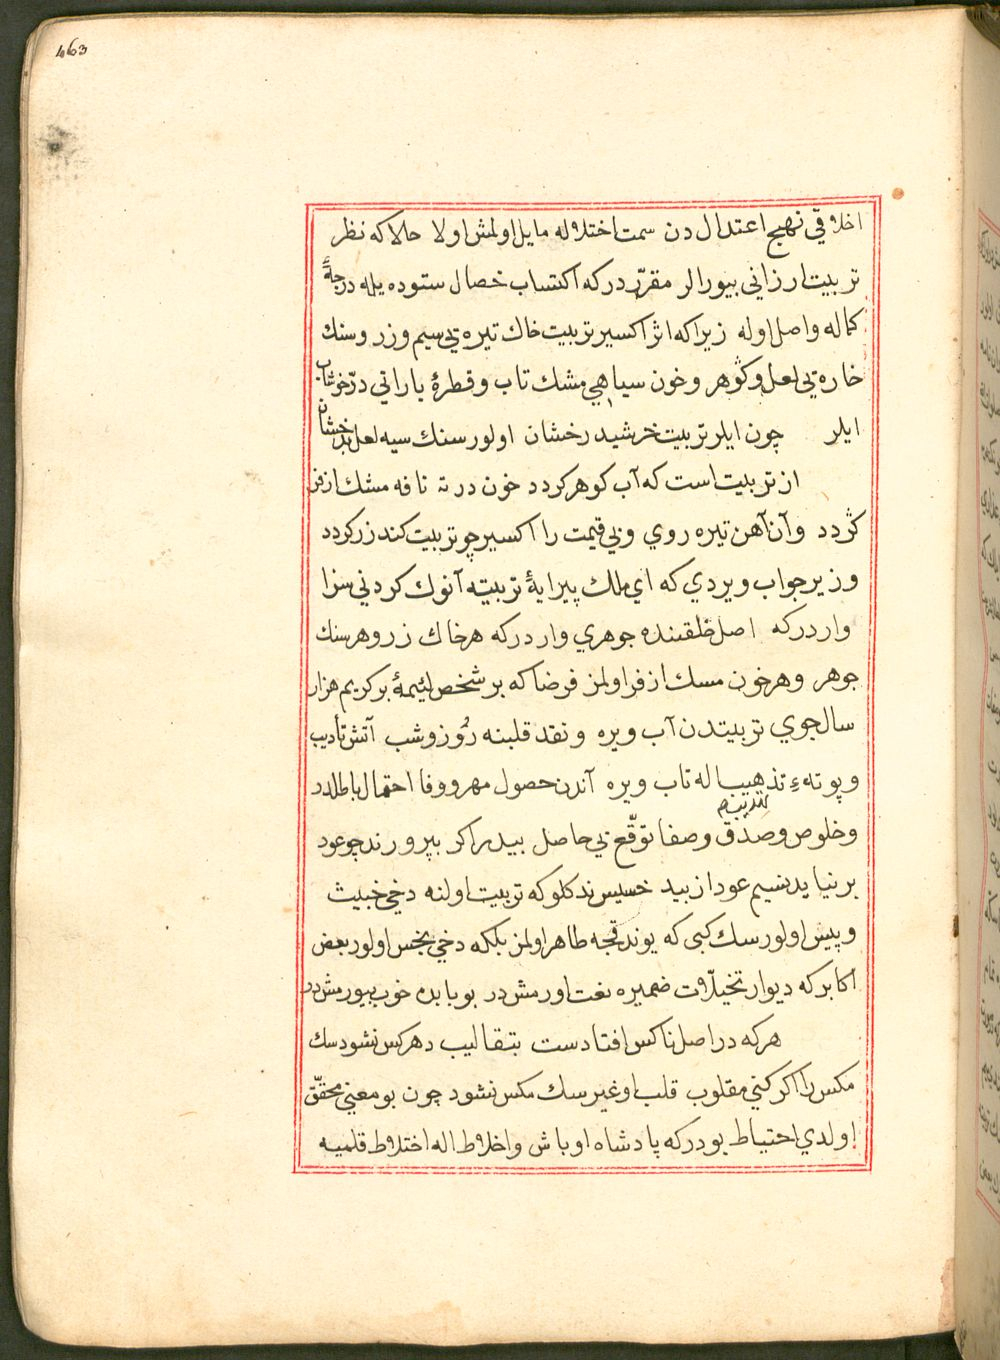 463
اخلاقی نهج اعتدال دن سمت اختلاله مایل اولمش اولا حالا که نظر
تربیت ارزانی بیورالر مقرّر در که اکتساب خصال ستوده یله درجهٔ
کماله واصل اوله زیرا که اثر اکسیر تربیت خاك تیره یی سیم وزر وسنك
خاره یی لعل وکوهر وخون سیاهی مشك تاب وقطرهٔ بارانی درّ خوشاب
ایلر چون ایلر تربیت خرشید رخشان اولور سنك سیه لعل بدخشان
از تربیت است که آب کوهر کردد خون در ته نافه مشك ازفر
کردد وآن آهن تیره روی وبی قیمت را اکسیر چو تربیت کند زر کردد
وزیر جواب ویردی که ای ملك پیرایهٔ تربیته آنوك کردنی سزا
وار در که اصل خلقتنده جوهری وار در که هر خاك زر وهر سنك
جوهر وهر خون مسك ازفر اولمز فرضا که بر شخص لئیمهٔ بر کریم هزار
سال جوی تربیتدن آب ویره ونقد قلبنه روز وشب آتش تأدیب
وپوتهء تذهیب له تاب ویره آندن حصول مهر ووفا احتمال باطلدر
وخلوص وصدق وصفا توقّع بی حاصل بیدر اکر بپرورند چو عود
بر نیاید نسیم عود از بید خسیس ندکلو که تربیت اولنه دخی خبیث
وپیس اولور سك کبی که یوندقجه طاهر اولمز بلکه دخی نجس اولور بعض
اکابر که دیوار تخیلات ضمیره نعت اورمش در بو بابده خوب بیورمش در
هر که در اصل ناکس افتادست بتقالیب دهر کس نشود سك
مکس را اکر کنی مقلوب قلب او غیر سك مکس نشود چون بو معنی محقّق
اولدی احتیاط بودر که پادشاه اوباش واخلاط اله اختلاط قلمیه